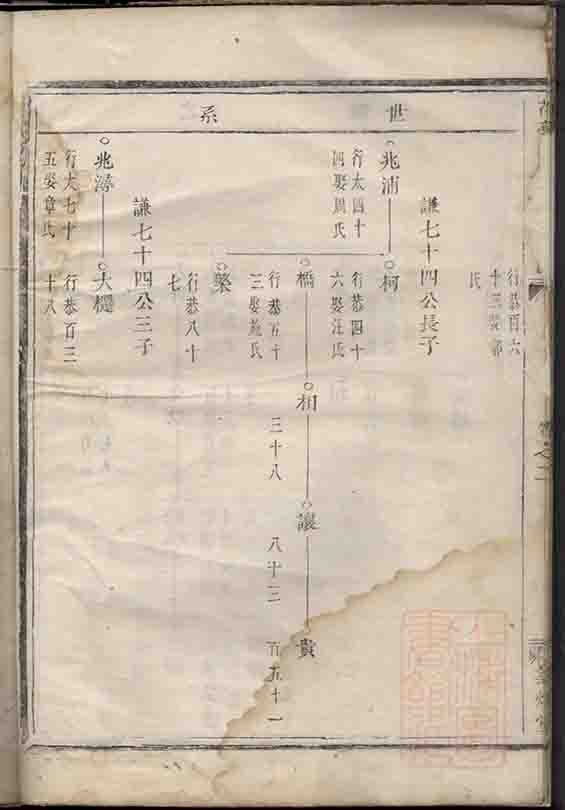 世系
行恭百六
十三娶郭
氏
謙七十四公長子
兆浦
行太四十
四娶周氏
柯
行恭四十
六娶汪氏
橋
行恭五十
三娶施氏
相
三十八
讓
八十三
貴
百五十一
榮
行恭八十
七
謙七十四公三子
兆
行太七十
五娶章氏
大
行恭百三
十八
之二